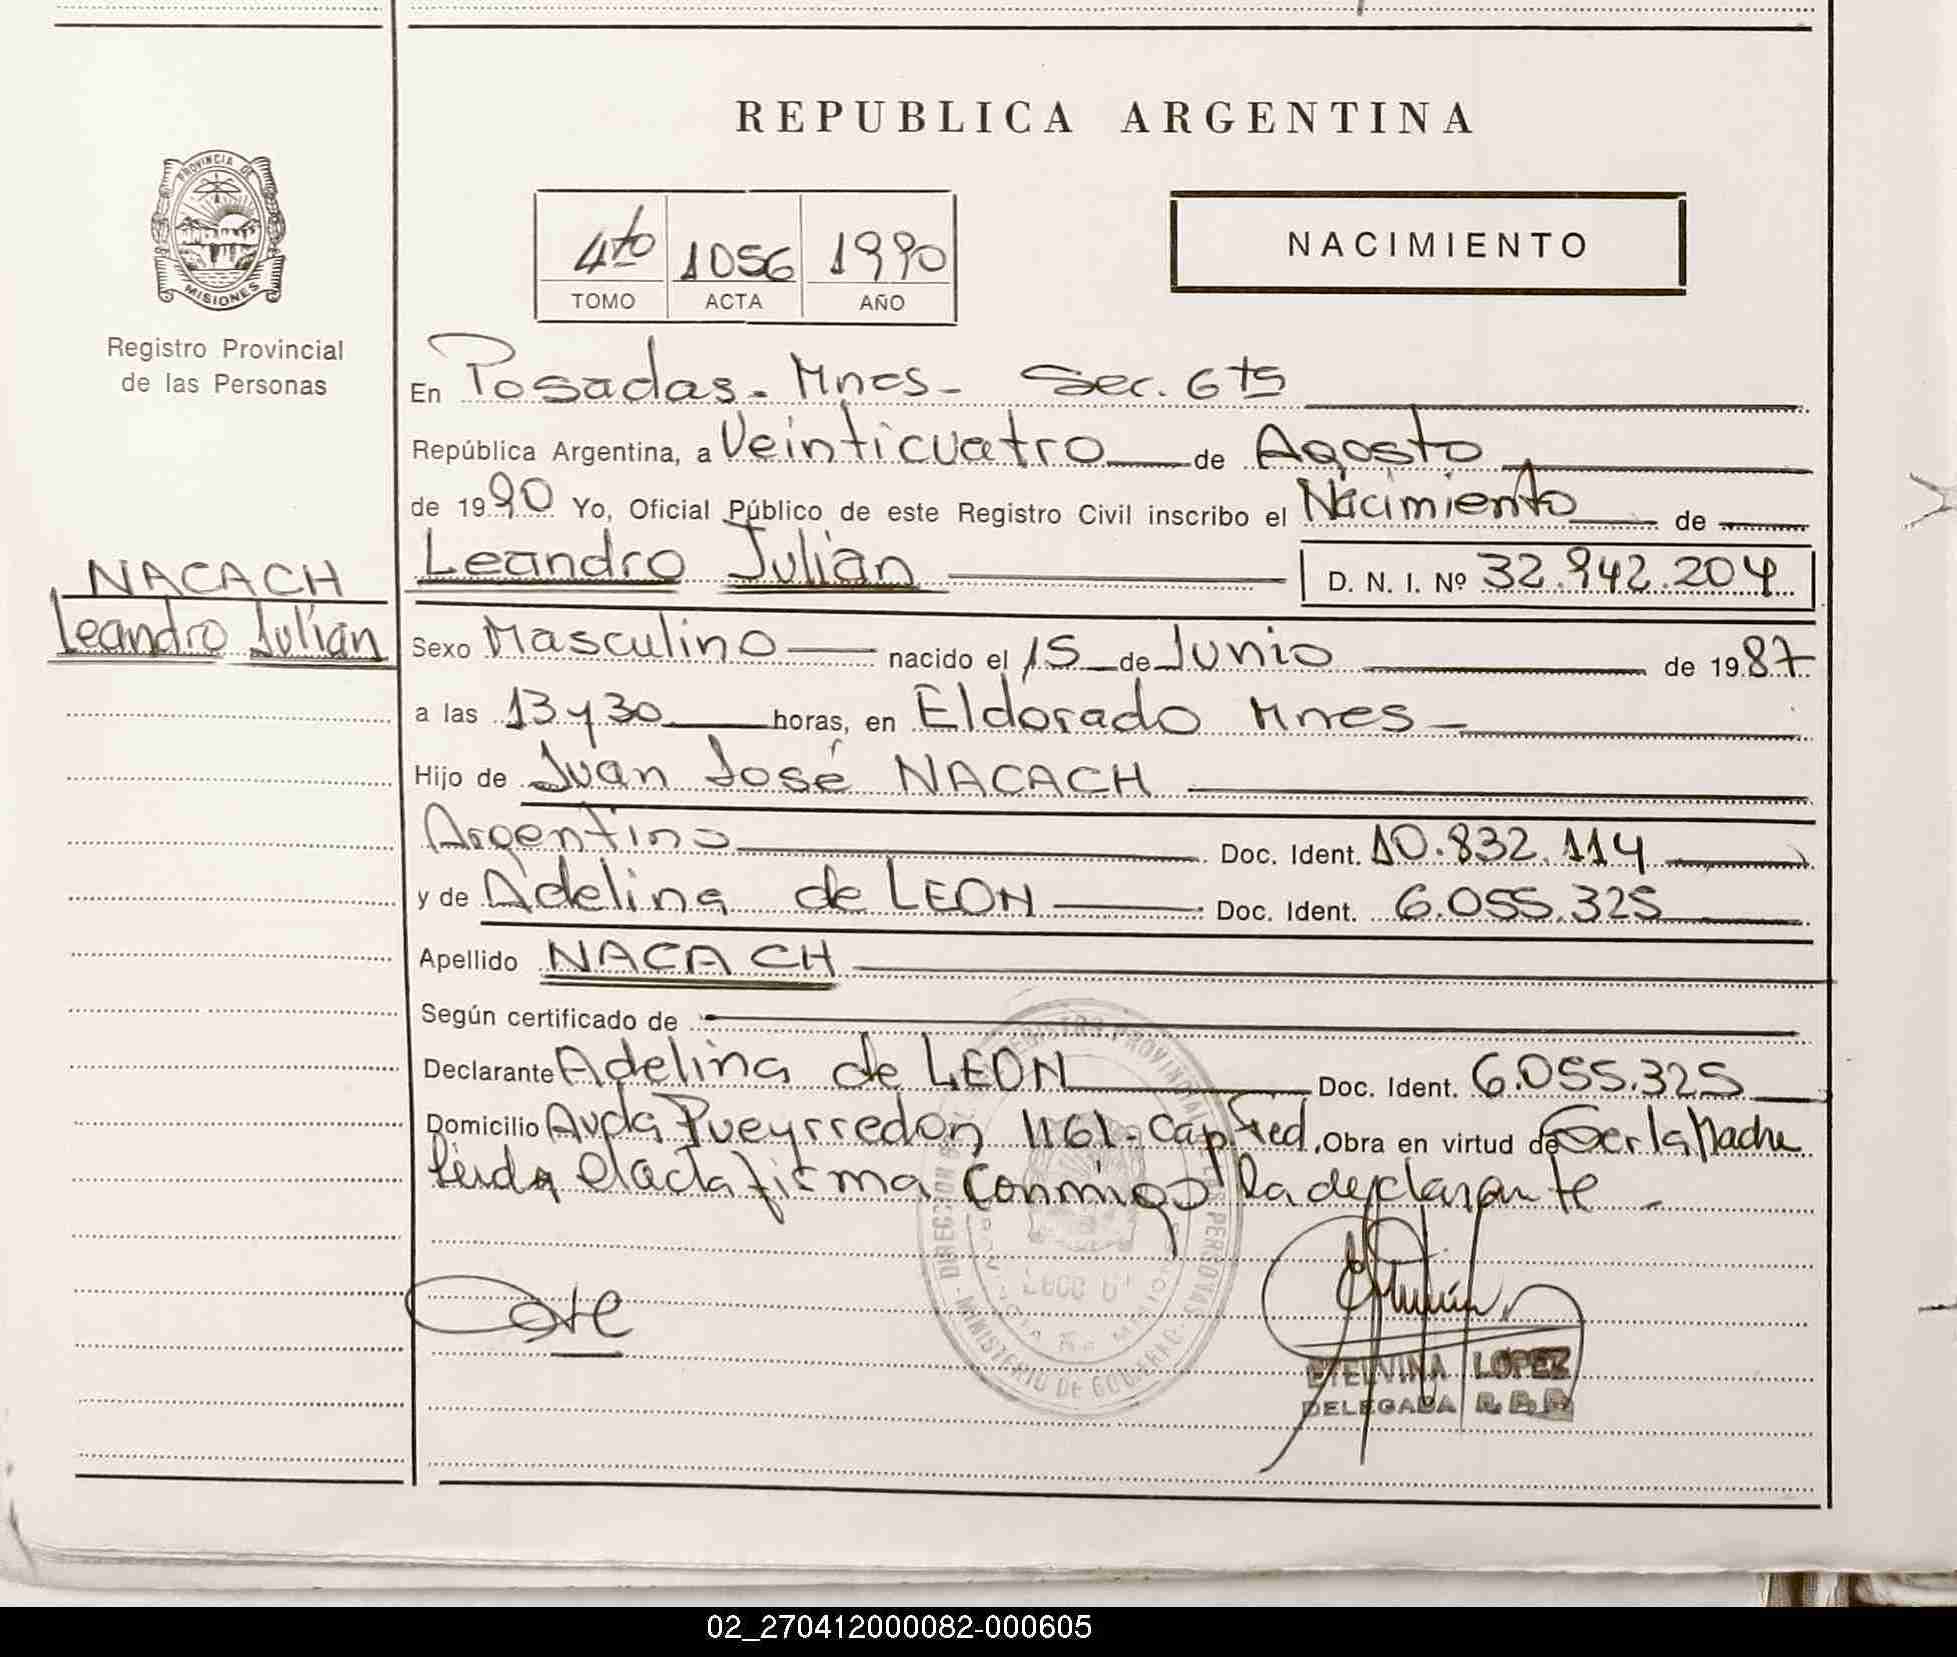 REPUBLICA ARGENTINA
PROVINCIA DE
MISIONES
Registro Provincial
de las Personas
4to 1056 1990
TOMO ACTA AÑO
NACIMIENTO
En Posadas. Mnes- Sec. 6ta
República Argentina, a Veinticuatro de Agosto
de 1990 Yo, Oficial Público de este Registro Civil inscribo el Nacimiento de
Leandro Julián D. N. I. Nº 32.942.204
NACACH
Leandro Julián
Sexo Masculino nacido el 15 de Junio de 1987
a las 13 y 30 horas, en Eldorado Mnes-
Hijo de Juan José NACACH
Argentino Doc. Ident. 10.832.114
y de Adelina de LEON Doc. Ident. 6.055.325
Apellido NACACH
Según certificado de
Declarante Adelina de LEON Doc. Ident. 6.055.325
Domicilio Avda Pueyrredon 1161- Cap Fed. Obra en virtud de Ser la Madre
leida el acta firma conmigo la declarante -
DIRECCION REGISTRO PROVINCIAL DE LAS PERSONAS
MINISTERIO DE GOBIERNO
ETELVINA LOPEZ
DELEGADA R. P. P.
02_270412000082-000605